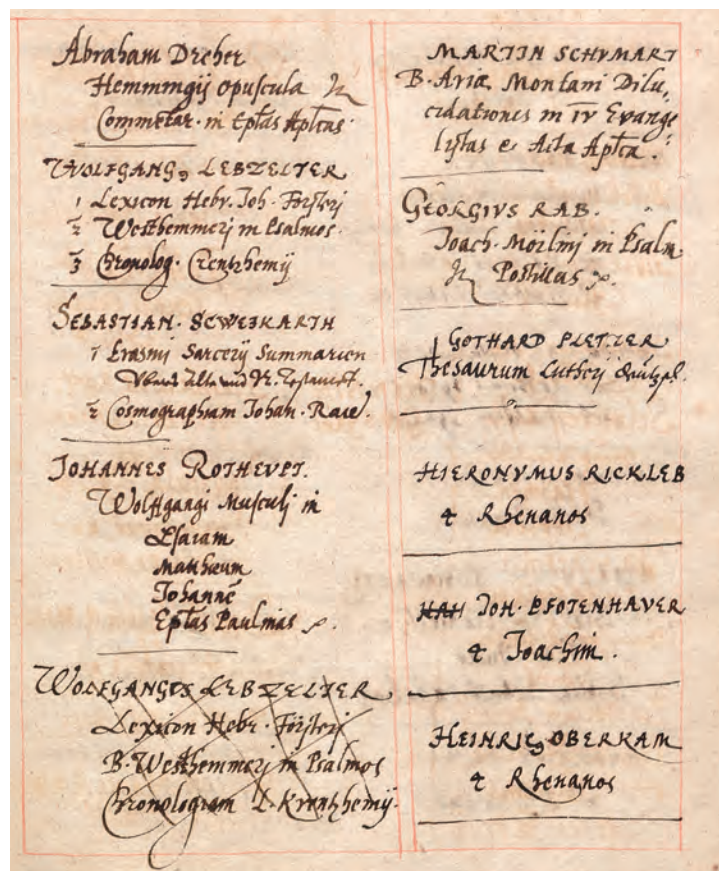 Abraham Dreher
Hemmingij Opuscula
Commētar. in Eptas Aptcas
WOLFGANG9 LEBZELTER
1 Lexicon Hebr. Joh. Försterj
2 Westhemmerj in Psalmos.
3 Chronolog. Crentzhemij
SEBASTIAN. SCWEIKARTH
1 Erasmj Sarcerij Summarien
Vber das Alte und N. Testament.
2 Cosmographiam Johan. Rau
JOHANNES ROTHEVPT.
Wolffgangi Musculj in
Esaiam
Matthæum
Johannē
Eptas Paulinas
WOLFGANGVS LEBZELTER
Lexicon Hebr. Försterj
B. Westhemmerj in Psalmos
Chronologiam L. Krentzhemij.
MARTIN SCHVMART
B. Ariæ Montani Dilu,
cidationes in IV Evange
lystas & Acta Aptca.
GEORGIVS RAB.
Joach. Mörlinj in Psalm.
Postillas
GOTHARD PLETZER
Thesaurum Lutherj
HIERONYMUS RICKLEB
4 Rhenanos
HAH JOH. PFOTENHAVER
4 Joachim.
HEINRIC9 OBERKAM
4 Rhenanos